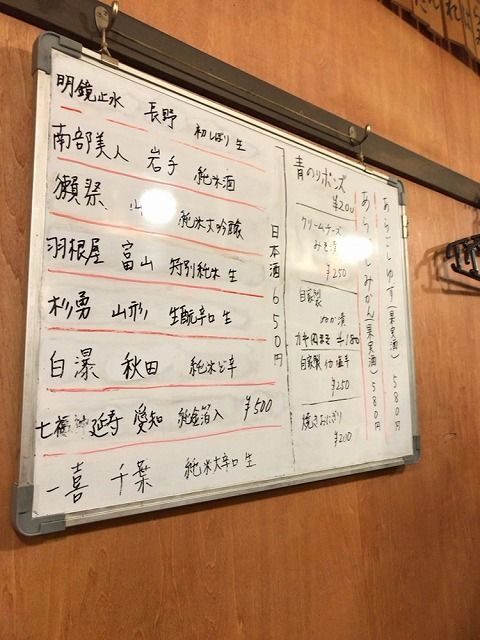 明鏡止水 長野 初しぼり 生
南部美人 岩手 純米酒
獺祭 山 純米大吟醸
羽根屋 富山 特別純米 生
杉勇 山形 生酛辛口 生
白瀑 秋田 純米ど辛
七福神 延寿 愛知 純金箔入 ¥500
一喜 千葉 純米大辛口 生
日本酒 650円
青のりポンズ
¥200
クリームチーズ
みそ漬
¥250
自家製
ぬか漬
カキ肉
180
自家製 塩辛
¥250
焼きおにぎり
¥200
あらごしみかん(果実酒) 580円
あらごしゆず(果実酒) 580円